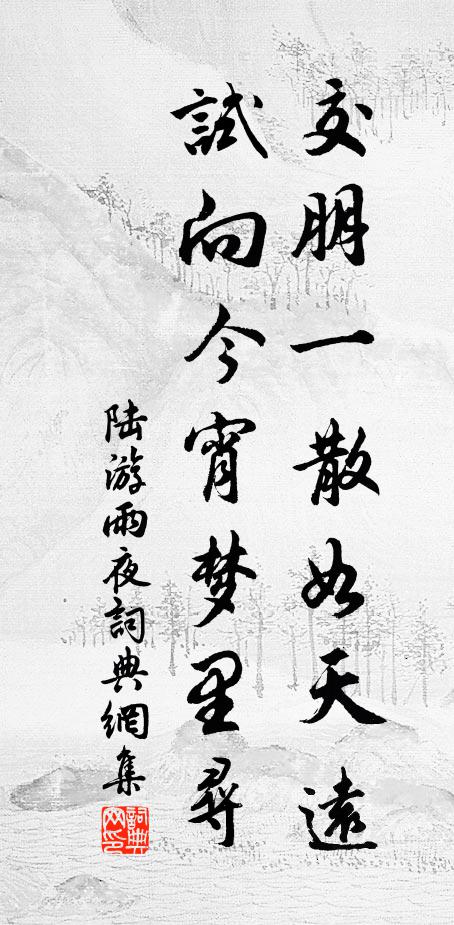 交朋一散如天遠
試向今宵梦里尋
陆游雨夜詞典網集
詞典网印